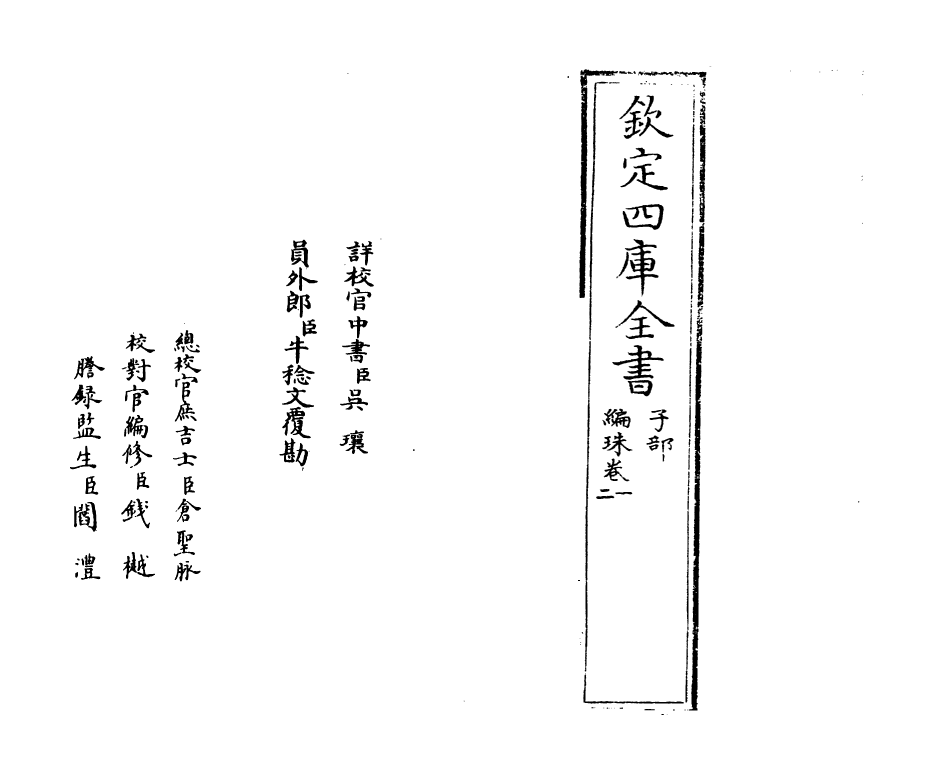 欽定四庫全書
子部
編珠卷一二
詳校官中書臣吳瓖
員外郎臣牛稔文覆勘
總校官庶吉士臣倉聖脉
校對官編修臣錢樾
謄録監生臣閻澧